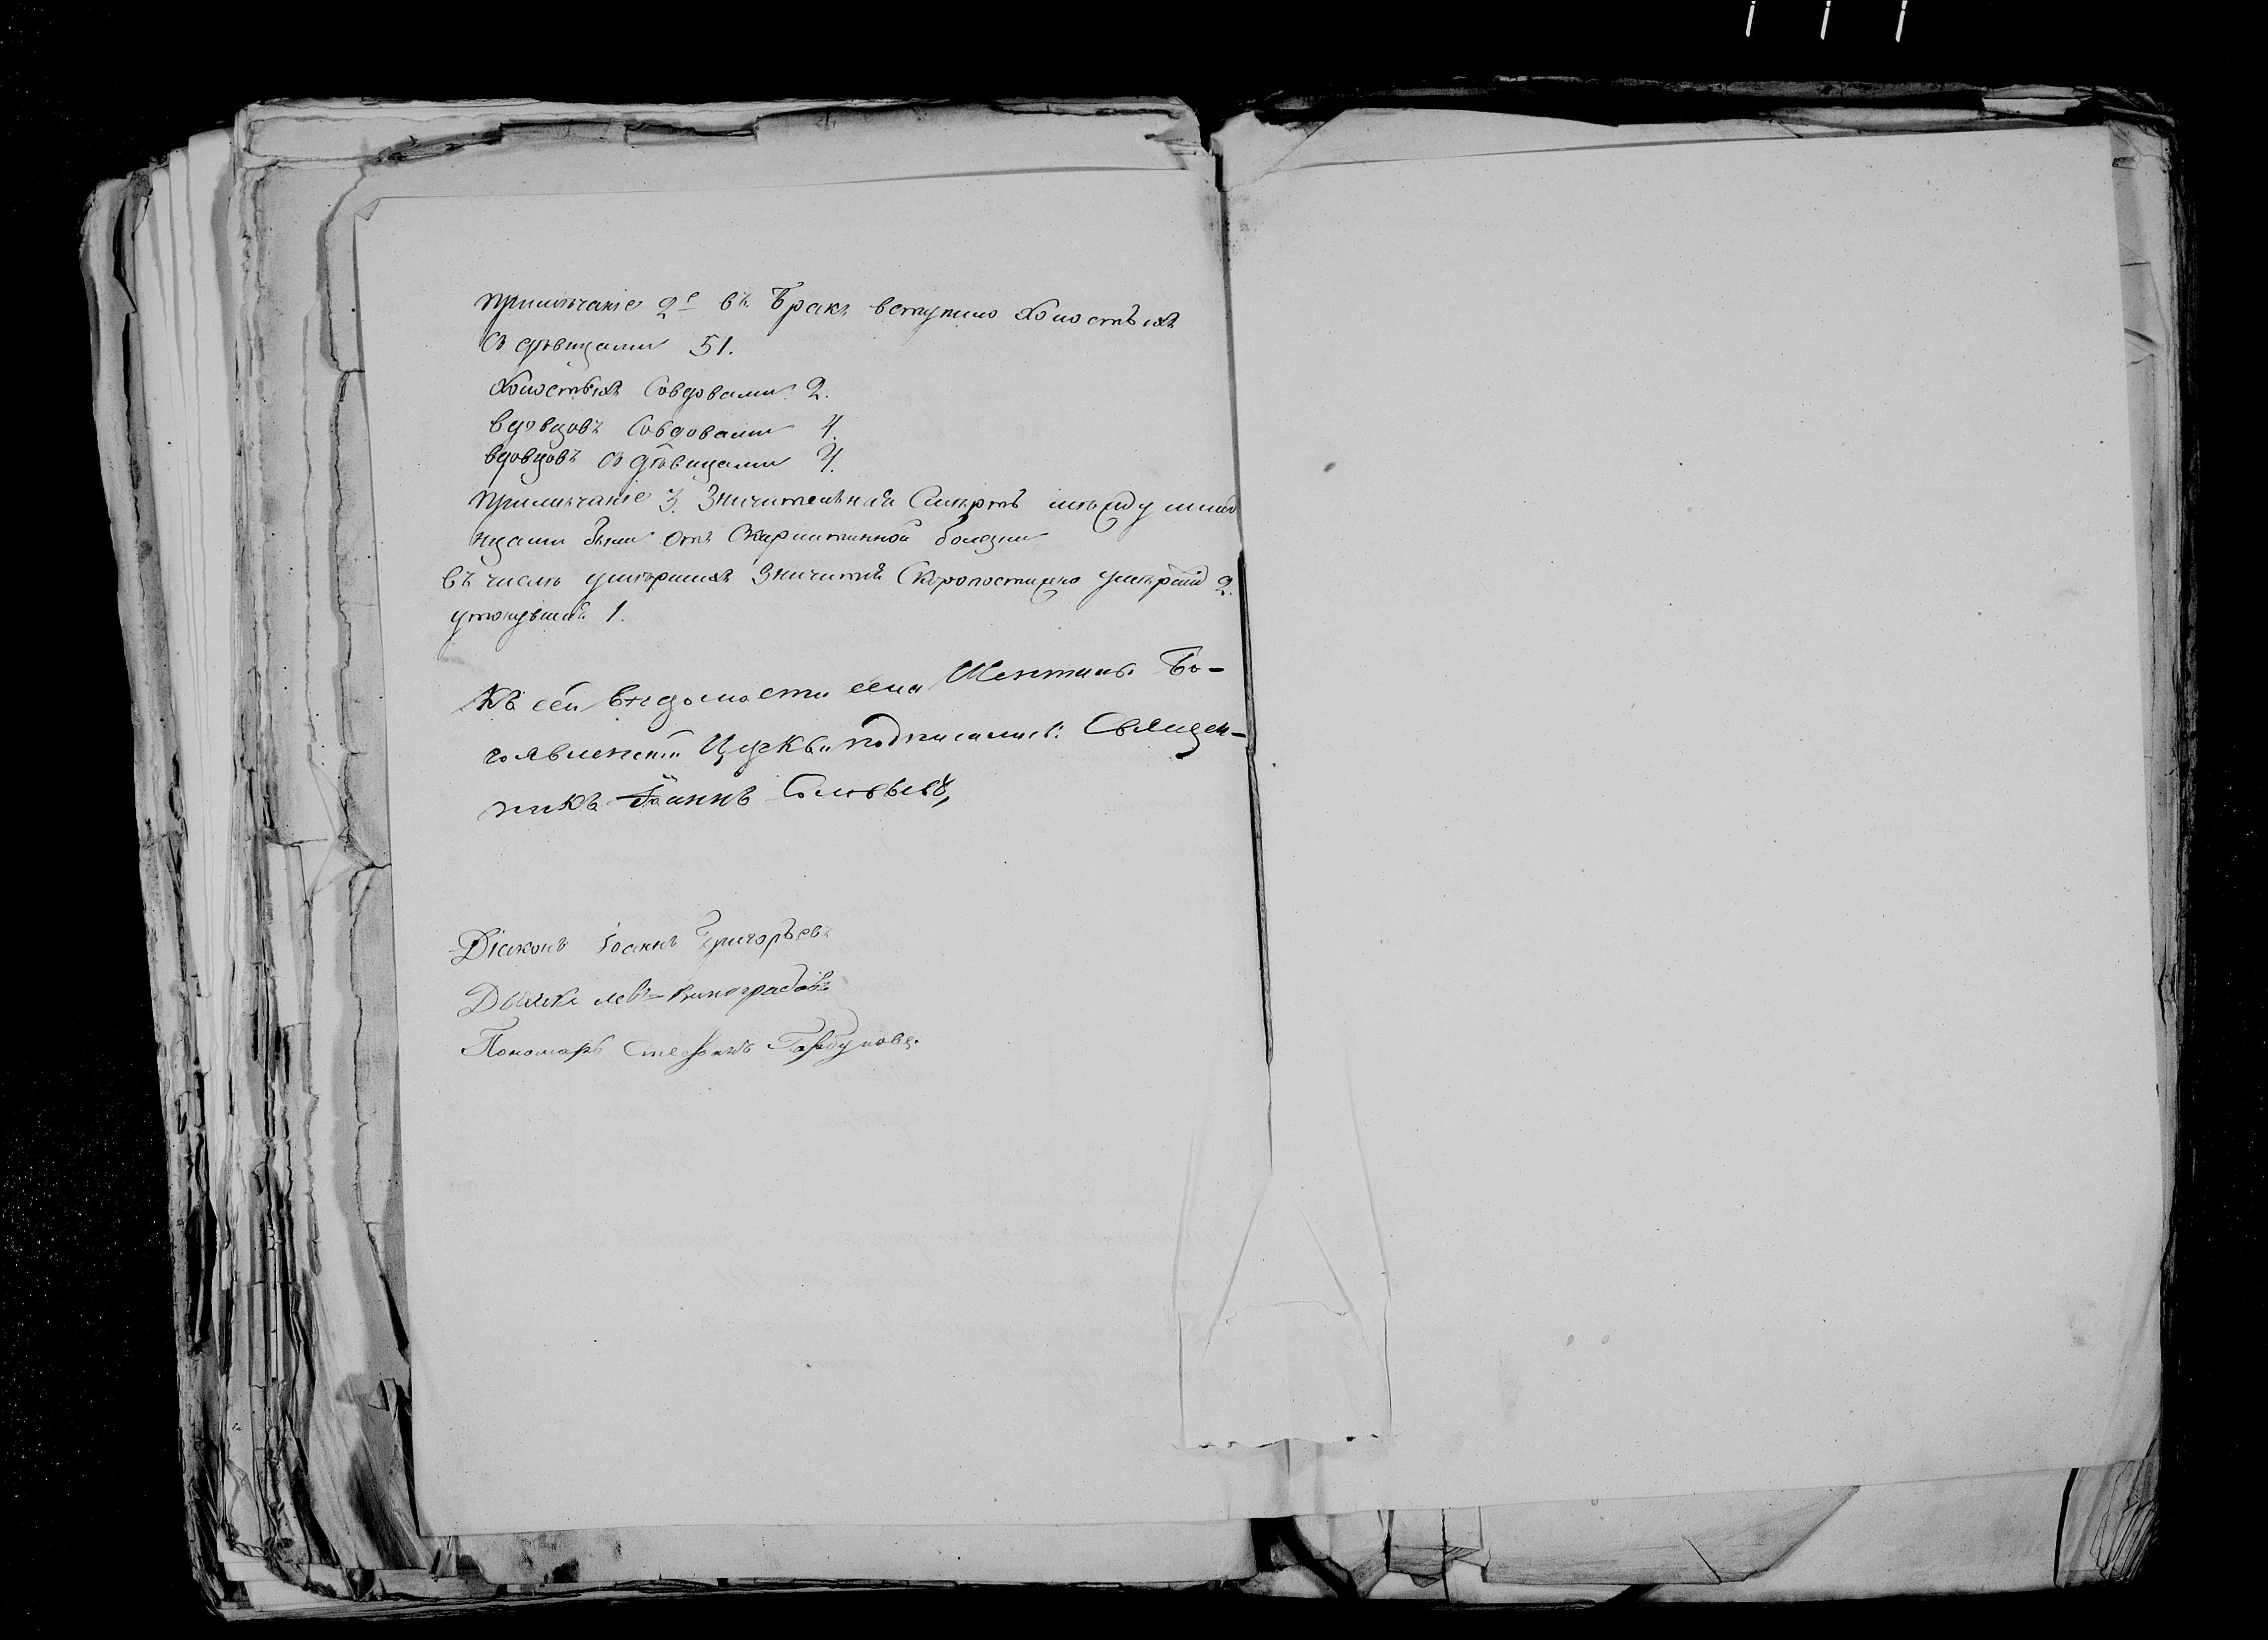 Примѣчаніе 2е въ Бракъ вступило Холостыхъ
съ дѣвицами 51.
Холостыхъ Совдовами 2.
вдовцовъ Совдовами 4.
вдовцовъ съ дѣвицами 4.
Примѣчаніе 3. Значительная Смерть между млад
нцами были отъ Скарлатинной болезни
въ числѣ умершихъ Скоропостижно 2.
утонувший 1.
Къ сей вѣдомости села Шентыны Бо-
гоявленской Церкви подписались: Священ-
никъ Іоаннъ Соловьевъ,
Діаконъ Іоаннъ Григорьевъ
Дьячкъ Левъ Виноградовъ
Пономарь Стефанъ Горбуновъ.